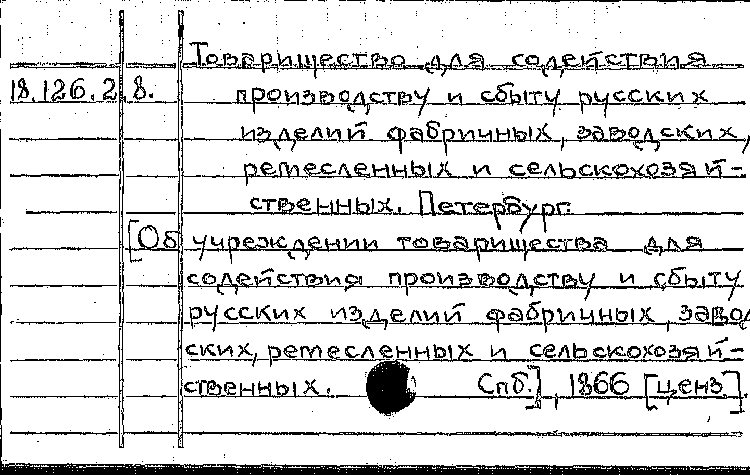 Товарищество для содействия
18.126.2.8. производству и сбыту русских
изделий фабричных, заводских,
ремесленных и сельскохозяй-
ственных. Петербург.
[Об учреждении товарищества для
содействия производству и сбыту
русских изделий фабричных, завод
ских, ремесленных и сельскохозяй-
ственных. Спб.], 1866 [ценз].